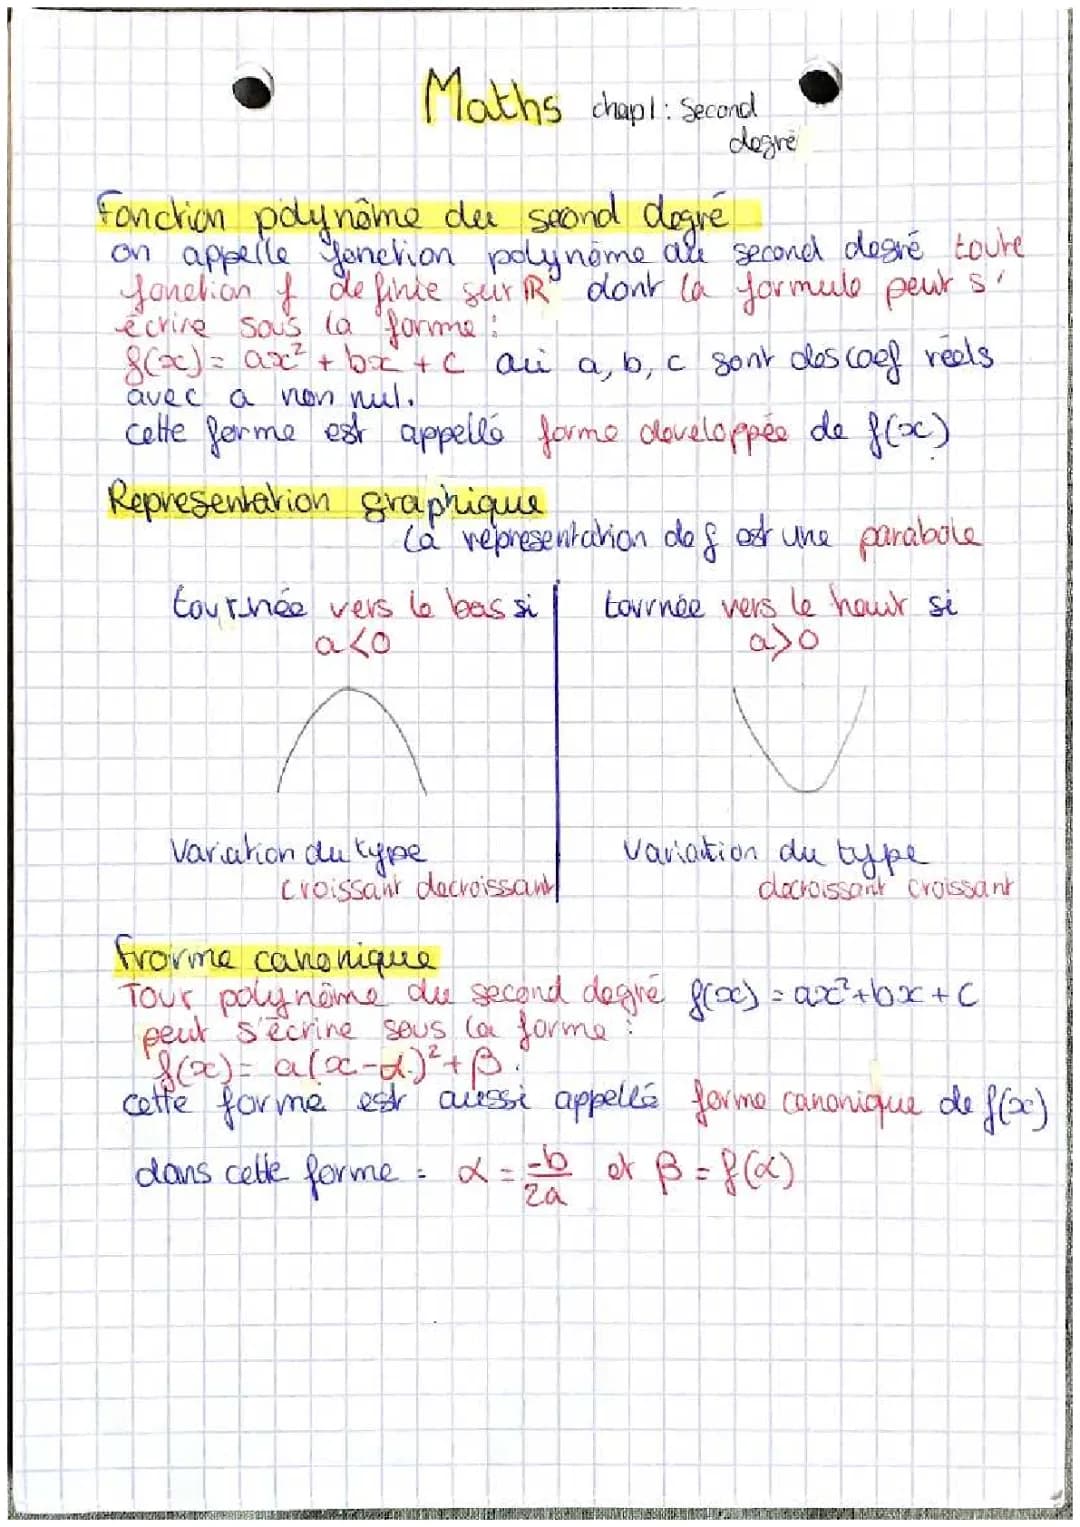 Maths chap1: Second
degré
Fonction polynôme du second degré
on appelle fonction polynôme du second degré toute
fonction f definie sur ℝ dont la formule peut s'
écrire sous la forme :
f(x) = ax² + bx + c où a, b, c sont des coef réels
avec a non nul.
cette forme est appellé forme developpée de f(x)
Representation graphique
la représentation de f est une parabole
tournée vers le bas si
a<0
tournée vers le haut si
a>0
Variation du type
croissant decroissant
Variation du type
decroissant croissant
Frorme canonique
Tout polynôme du second degré f(x) = ax²+bx+c
peut s'écrire sous la forme :
f(x) = a(x-α)²+β.
cette forme est aussi appellé forme canonique de f(x)
dans cette forme : α = -b/2a et β = f(α)